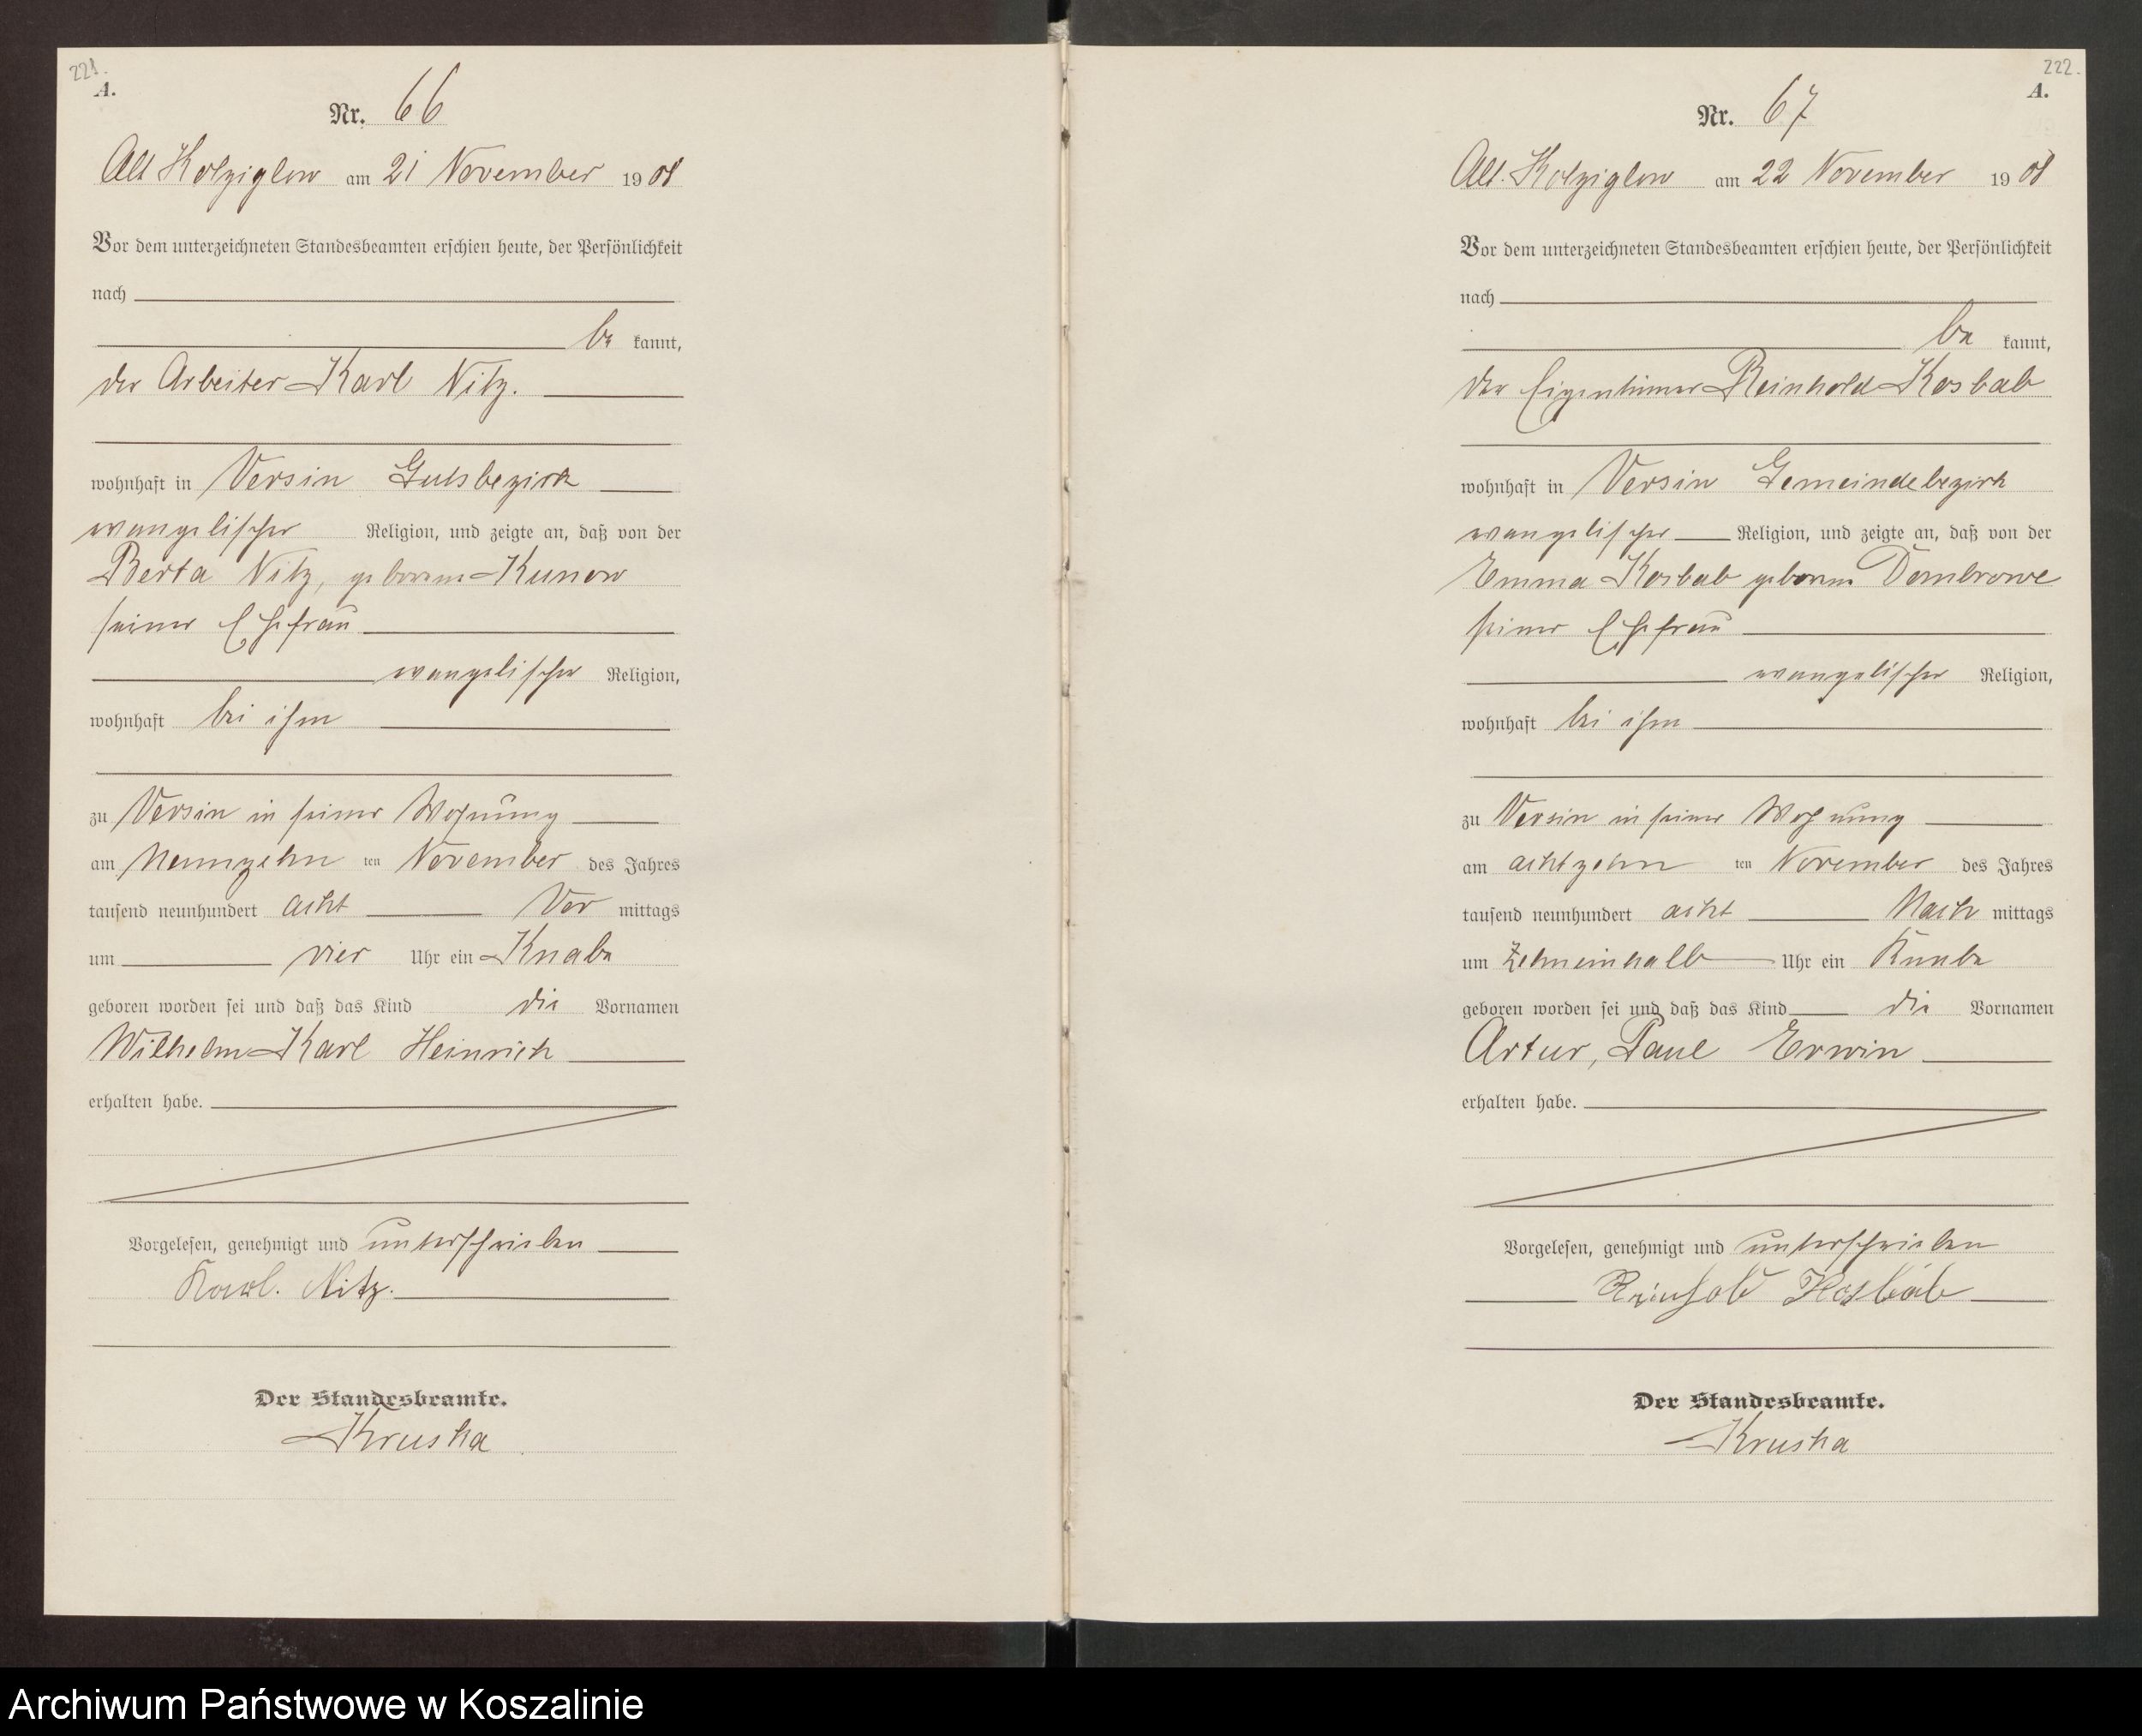 221.
A.
Nr. 66
Alt Kolziglow am 21 November 1908
Vor dem unterzeichneten Standesbeamten erschien heute, der Persönlichkeit
nach
be kannt,
der Arbeiter Karl Nitz.
wohnhaft in Versin Gutsbezirk
evangelischer Religion, und zeigte an, daß von der
Berta Nitz, geborene Kunow
seiner Ehefrau
evangelischer Religion,
wohnhaft bei ihm
zu Versin in seiner Wohnung
am Neunzehn ten November des Jahres
tausend neunhundert acht Vor mittags
um vier Uhr ein Knabe
geboren worden sei und daß das Kind die Vornamen
Wilhelm Karl Heinrich
erhalten habe.
Vorgelesen, genehmigt und unterschrieben
Karl. Nitz.
Der Standesbeamte.
Kruska
222.
A.
Nr. 67
Alt. Kolziglow am 22 November 1908
Vor dem unterzeichneten Standesbeamten erschien heute, der Persönlichkeit
nach
be kannt,
der Eigentümer Reinhold Kosbab
wohnhaft in Versin Gemeindebezirk
evangelischer Religion, und zeigte an, daß von der
Emma Kosbab geborene Dombrowe
seiner Ehefrau
evangelischer Religion,
wohnhaft bei ihm
zu Versin in seiner Wohnung
am achtzehn ten November des Jahres
tausend neunhundert acht Nach mittags
um Zehneinhalb Uhr ein Knabe
geboren worden sei und daß das Kind die Vornamen
Artur, Paul Erwin
erhalten habe.
Vorgelesen, genehmigt und unterschrieben
Reinhold Kosbab
Der Standesbeamte.
Kruska
Archiwum Państwowe w Koszalinie